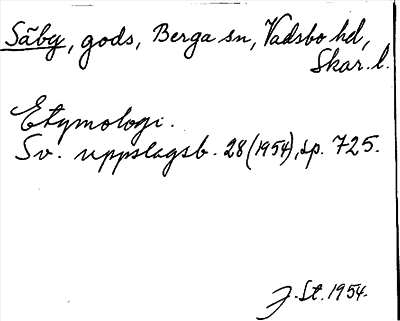 Säby, gods, Berga sn, Vadsbo hd,
Skar. l.
Etymologi.
Sv. uppslagsb. 28 (1954), sp. 725.
J. St. 1954.